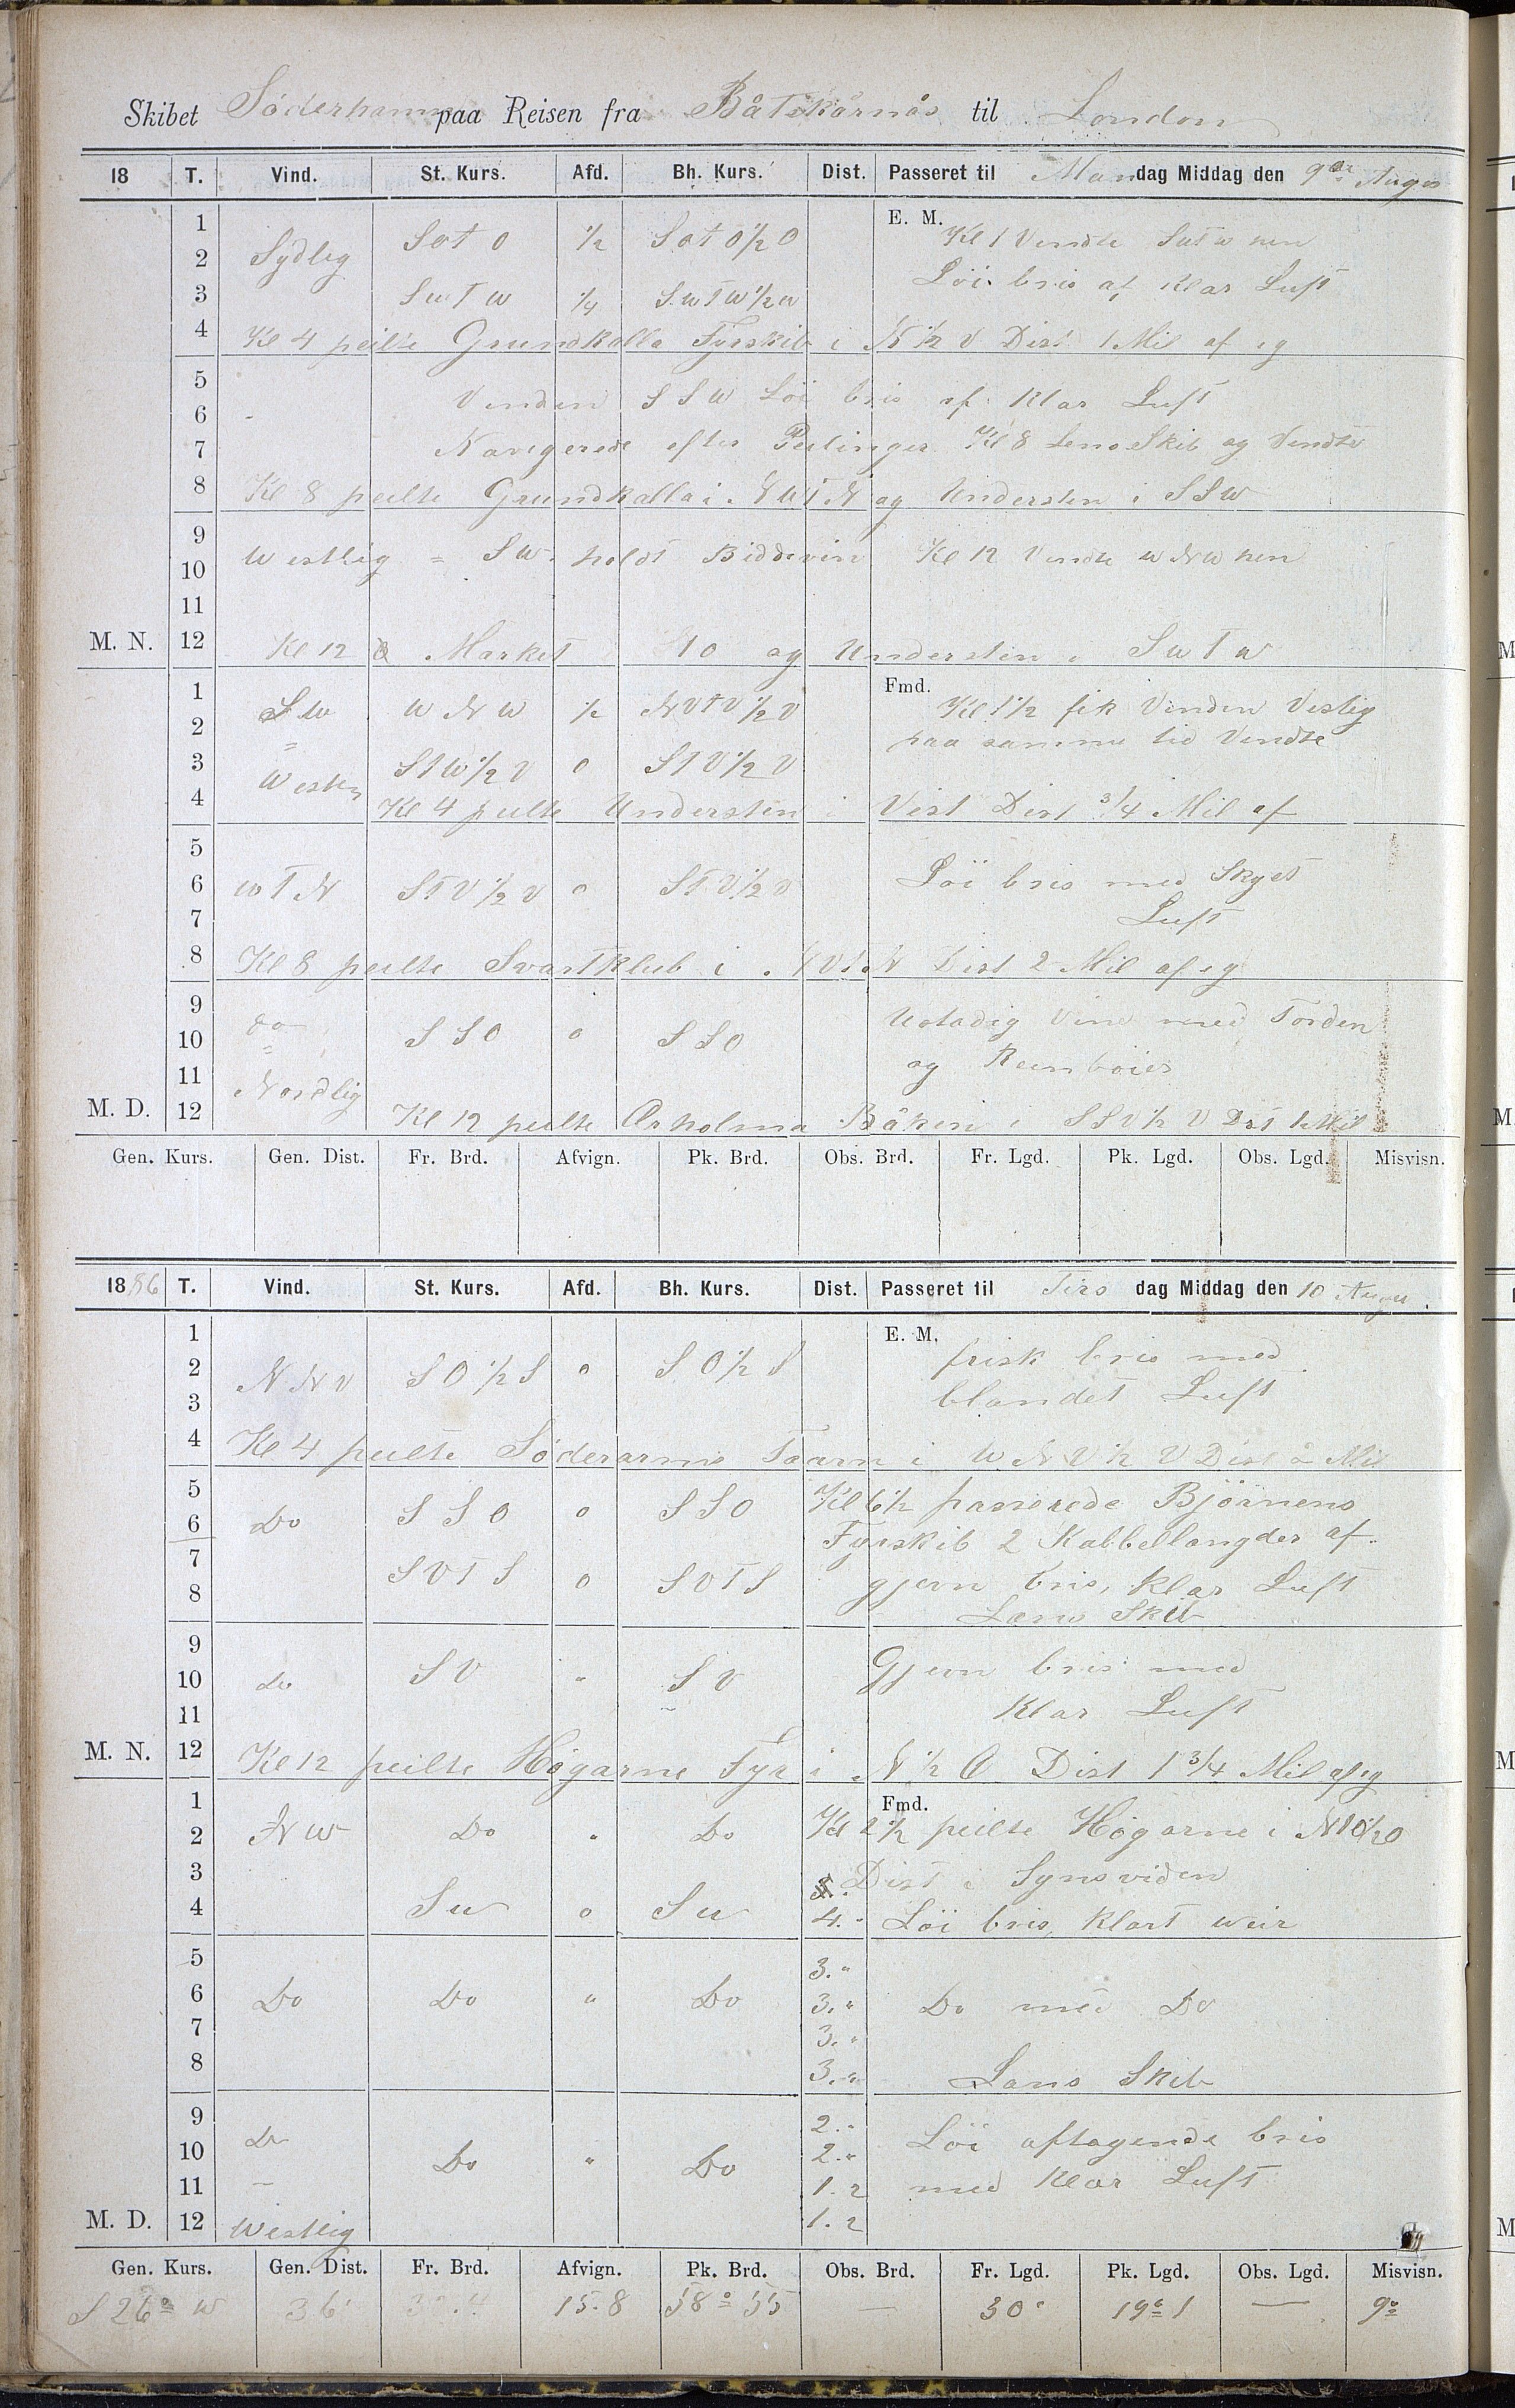 Skibet Söderhamn paa Reisen fra Båtskärnäs til London
18 T. Vind. St. Kurs. Afd. Bh. Kurs. Dist. Passeret til Mandag Middag den 9de Augs
E. M.
1 Kl 1 Vendte SWTW hen
2 Sydlig SOTO 1/2 SOTO 1/2 O
Löi bris af Klar Luft
3 SWTW 1/4 SWTW 1/2 W
4 Kl 4 peilte Grundkalla Fyrskib i N 1/2 V Dist 1 Mil af eg
5 Venden SSW Löi bris af Klar Luft
6
7 Navigerede efter Peilinger Kl 8 Lens Skib og Vendte
8 Kl 8 peilte Grundkalla i NWTN og Understen i SSW
9
10 Westlig = SW holdt Biddevin Kl 12 Vendte WNW hen
11
M. N. 12 Kl 12 Market TO og Understen i SWTW
Fmd.
1 SW WNW 1/2 NVTV 1/2 V Kl 1 1/2 fik Vinden Vestlig
2 = paa samme tid Vendte
3 Westlig STW 1/2 V 0 STV 1/2 V
4 Kl 4 peilte Understen i Vest Dist 3/4 Mil af
5
6 WTN STV 1/2 V 0 STV 1/2 V Löi bris med Skyet
7 Luft
8 Kl 8 peilte Svartklub i NVTN Dist 2 Mil af eg
9 Ustadig Vind med Torden
10 do SSO 0 SSO
11 Nordlig og Reinböier
M. D. 12 Kl 12 peilte Arholma Båken i SSV 1/2 V Dist 1 Mil
Gen. Kurs. Gen. Dist. Fr. Brd. Afvign. Pk. Brd. Obs. Brd. Fr. Lgd. Pk. Lgd. Obs. Lgd. Misvisn.
1886 T. Vind. St. Kurs. Afd. Bh. Kurs. Dist. Passeret til Tirsdag Middag den 10 Augu
E. M.
1 frisk bris med
2 NNV SO 1/2 S 0 SO 1/2 S
3 blandet Luft
4 Kl 4 peilte Söderarms Taarn i WNV 1/2 V Dist Mil
5 Kl 6 1/2 passerede Björnens
6 Do SSO 0 SSO Fyrskib 2 Kabbellangder af
7 SVTS 0 SVTS gjevn bris, Klar Luft
8 Lens Skib
9 Gjevn bris med
10 do SV " SV
11 Klar Luft
M. N. 12 Kl 12 peilte Högarne Fyr i N 1/2 O Dist 1 3/4 Mil af eg
Fmd.
1
2 NW Do " Do Kl 2 1/2 peilte Högarne i NTO 1/2 O
3 Dist i Synsviden
4 SW 0 SW 4." Löi bris, Klart weir
5 3."
6 Do Do " Do 3." Do med Do
7 3."
8 3." Lens Skib
9 2."
10 do Do " Do 2." Löi aftagende bris
11 1.2 med Klar Luft
M. D. 12 Westlig 1.2
Gen. Kurs. Gen. Dist. Fr. Brd. Afvign. Pk. Brd. Obs. Brd. Fr. Lgd. Pk. Lgd. Obs. Lgd. Misvisn.
S 26° W 36' 32.4 15.8 58° 55 — 30' 19° 1 — 9°